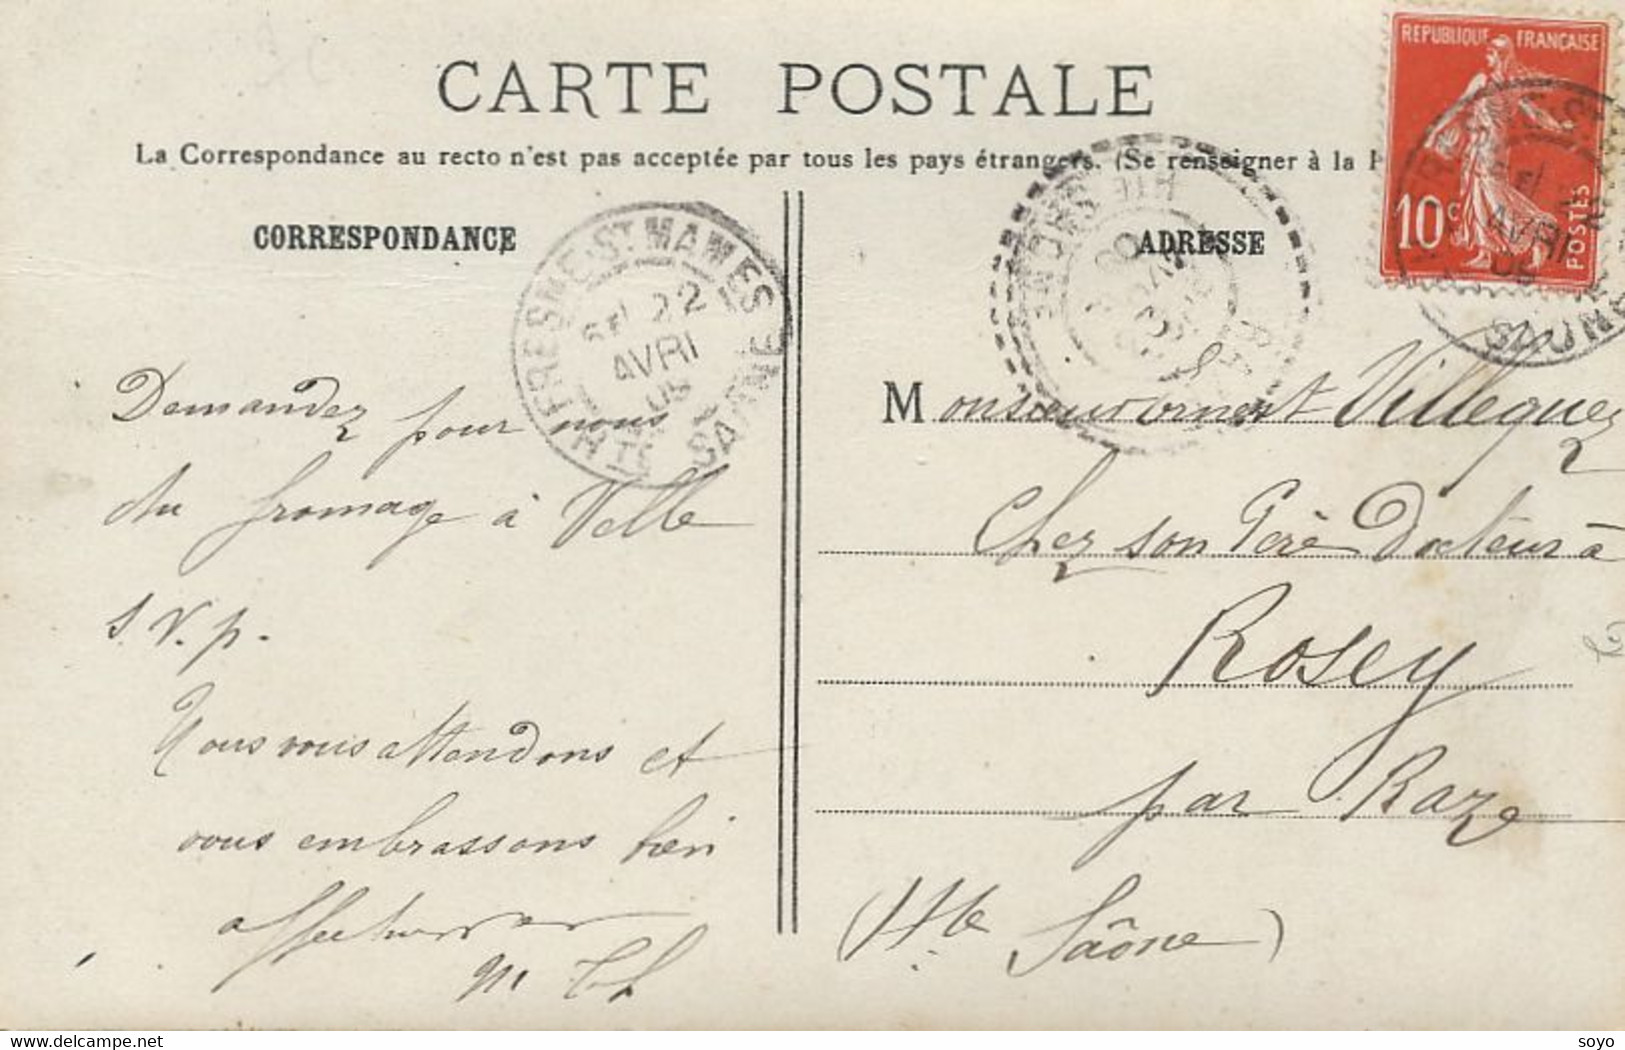 CARTE POSTALE
La Correspondance au recto n'est pas acceptée par tous les pays étrangers. (Se renseigner à la
CORRESPONDANCE
Demandez pour nous
du fromage à Velle
s. v. p.
Nous vous attendons et
vous embrassons bien
affectueusement
FRESNE-ST MAMES
HTE SAONE
22
AVRIL
ADRESSE
HTE SAONE
REPUBLIQUE FRANÇAISE
10c
POSTES
AVRIL
Monsieur Ernest Villequez
Chez son Père Docteur à
Rosey
par Raze
(Hte Saône)
www.delcampe.net
soyo